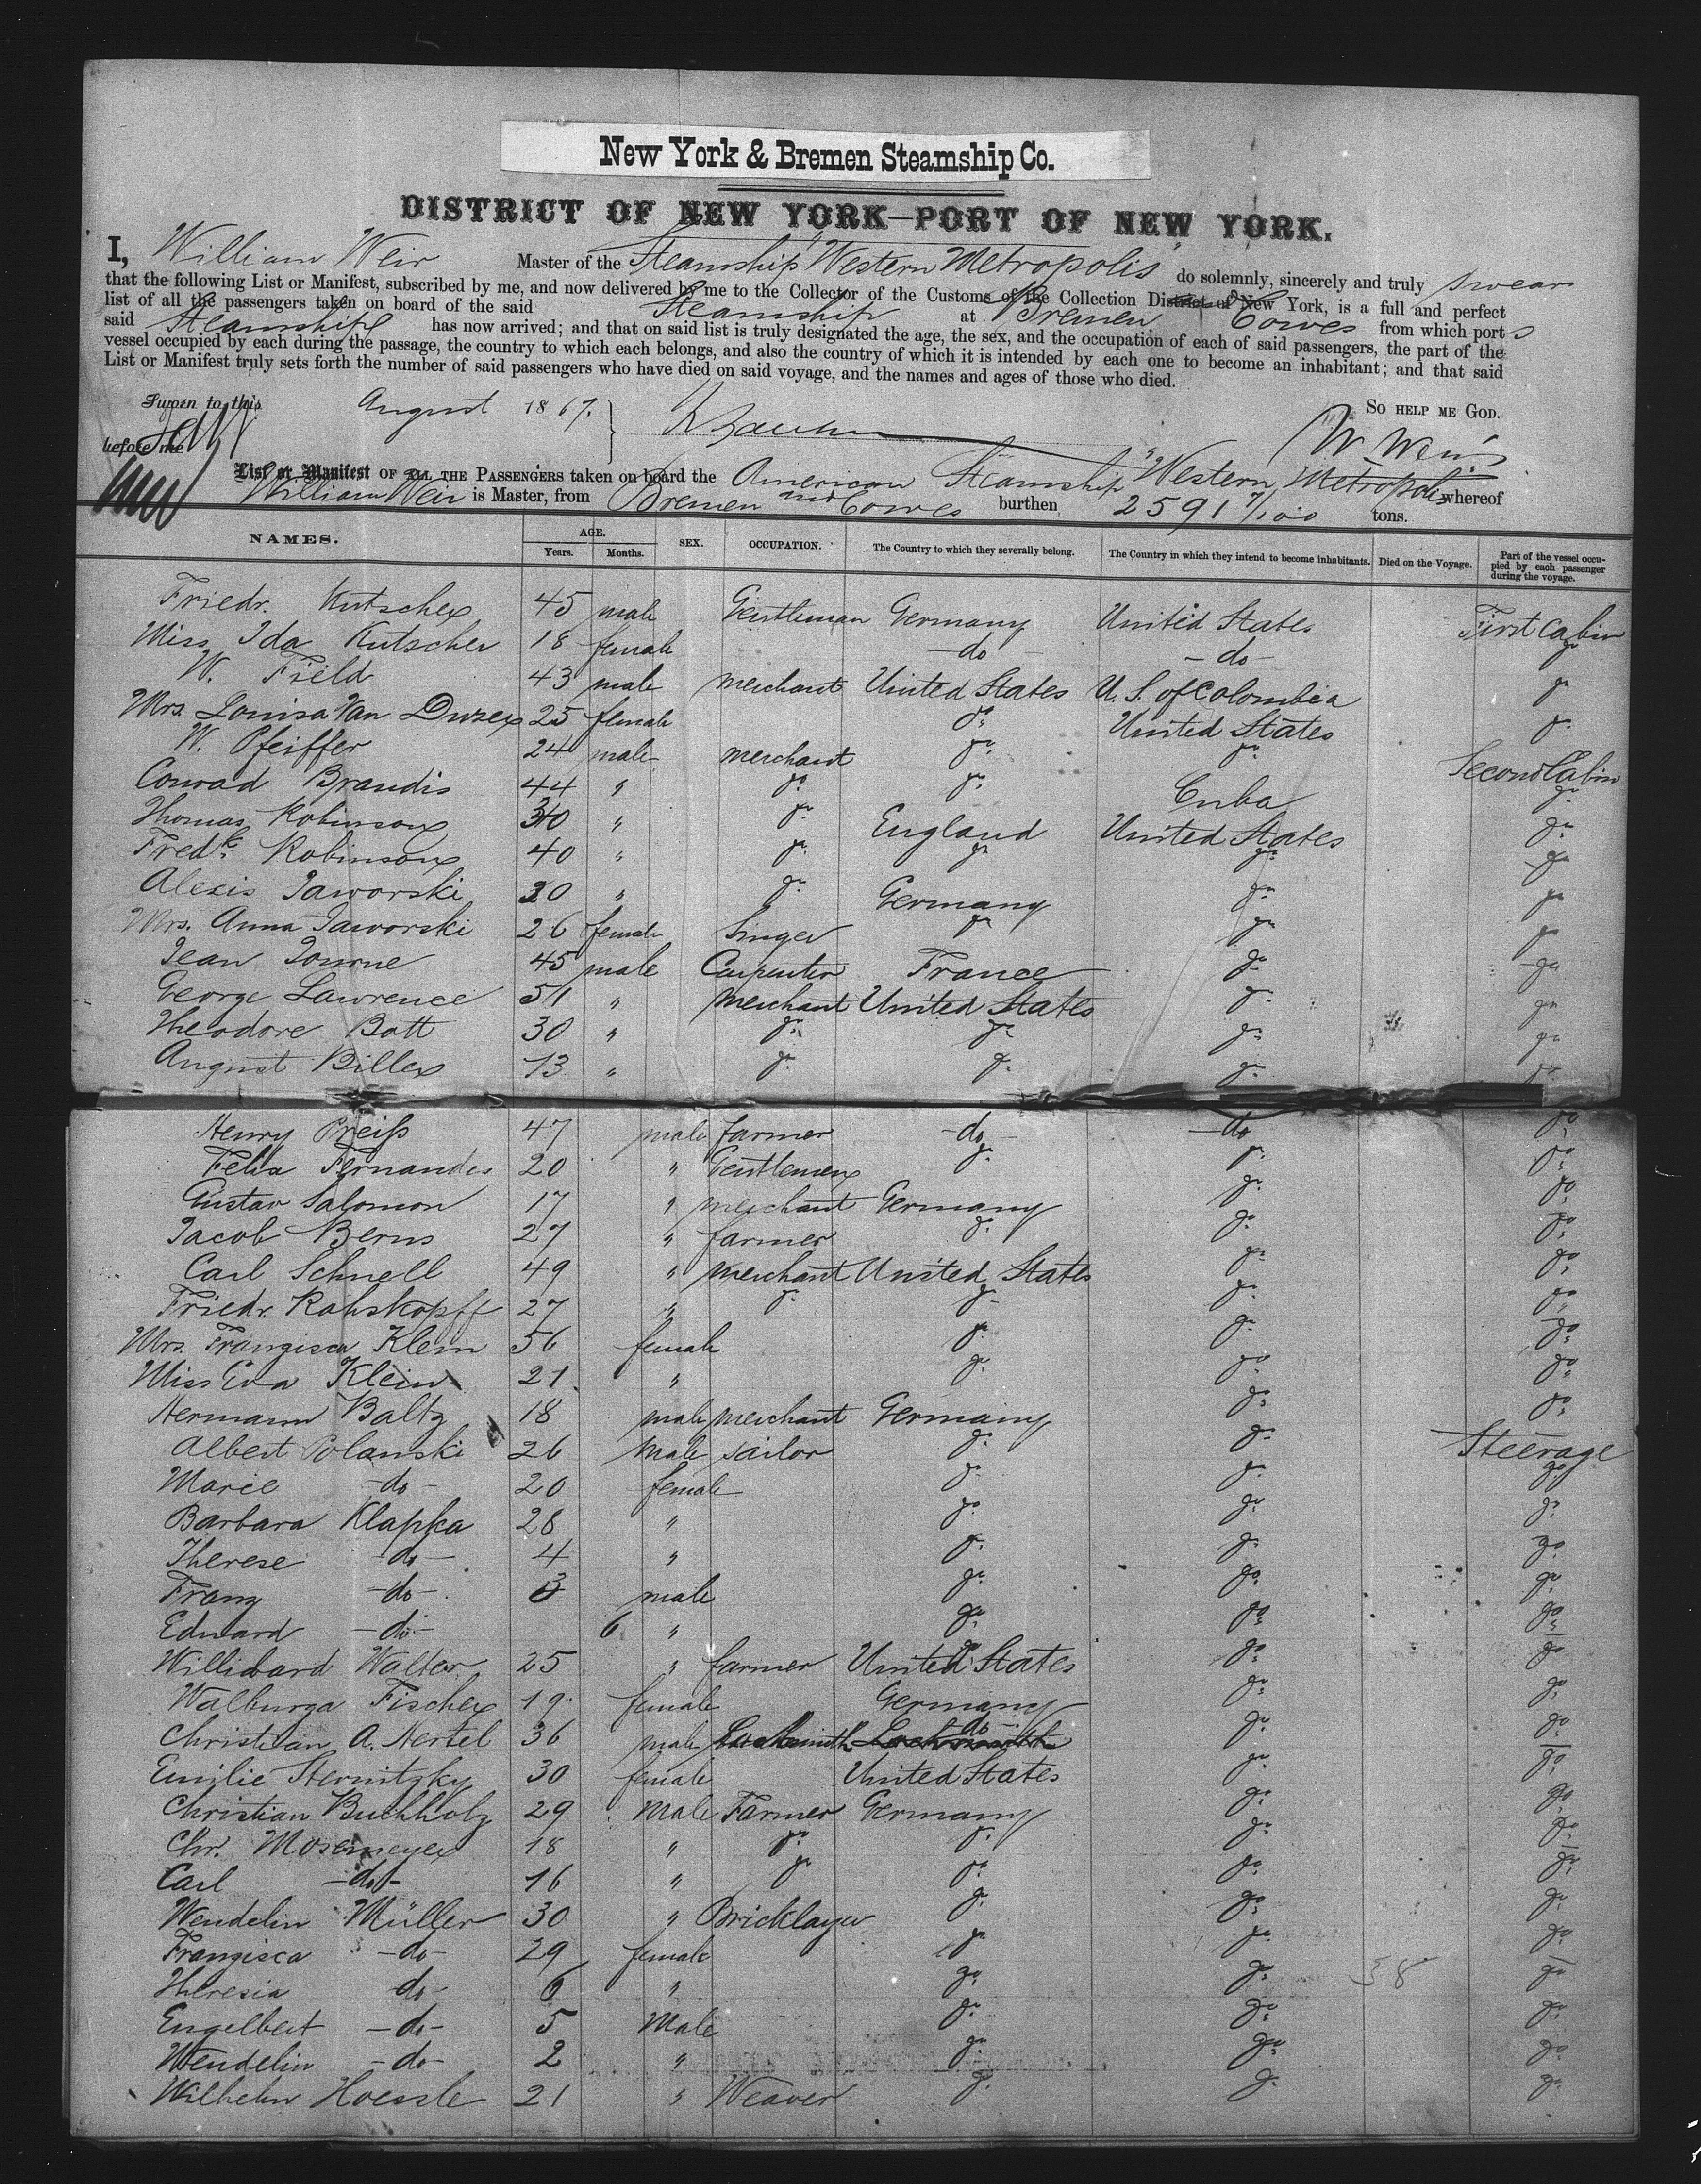 New York & Bremen Steamship Co.
DISTRICT OF NEW YORK—PORT OF NEW YORK.
I, William Weir Master of the Steamship "Western Metropolis" do solemnly, sincerely and truly swear
that the following List or Manifest, subscribed by me, and now delivered by me to the Collector of the Customs of the Collection District of New York, is a full and perfect
list of all the passengers taken on board of the said Steamship at Bremen & Cowes from which ports
said Steamship has now arrived; and that on said list is truly designated the age, the sex, and the occupation of each of said passengers, the part of the
vessel occupied by each during the passage, the country to which each belongs, and also the country of which it is intended by each one to become an inhabitant; and that said
List or Manifest truly sets forth the number of said passengers who have died on said voyage, and the names and ages of those who died.
So help me God.
Sworn to this August 1867.
before me
W. Weir
List or Manifest OF ALL THE PASSENGERS taken on board the American Steamship "Western Metropolis" whereof
William Weir is Master, from Bremen and Cowes burthen 2591 7/100 tons.
NAMES. AGE. Years. Months. SEX. OCCUPATION. The Country to which they severally belong. The Country in which they intend to become inhabitants. Died on the Voyage. Part of the vessel occupied by each passenger during the voyage.
Friedr. Kutscher 45 male Gentleman Germany United States First Cabin
Miss Ida Kutscher 18 female -do- -do- do
W. Field 43 male merchant United States U.S. of Colombia do
Mrs. Louisa Van Duzer 25 female do United States do
W. Pfeiffer 24 male merchant do do Second Cabin
Conrad Brandis 44 " do do Cuba do
Thomas Robinson 30 " do England United States do
Fredk. Robinson 40 " do do do do
Alexis Jaworski 30 " do Germany do do
Mrs. Anna Jaworski 26 female Singer do do do
Jean Journe 45 male Carpenter France do do
George Lawrence 51 " merchant United States do do
Theodore Bott 30 " do do do do
August Biller 13 " do do do do
Henry Preiß 47 male farmer -do- -do- do
Felix Fernandes 20 " Gentleman do do do
Gustav Salomon 17 " merchant Germany do do
Jacob Berns 27 " farmer do do do
Carl Schnell 49 " merchant United States do do
Friedr. Rahskopff 27 " do do do do
Mrs. Franzisca Klein 56 female do do do
Miss Eva Klein 21 " do do do
Hermann Baltz 18 male merchant Germany do do
Albert Polanski 26 male sailor do do Steerage
Marie -do- 20 female do do do
Barbara Klapka 28 " do do do
Therese -do- 4 " do do do
Franz -do- 3 male do do do
Edward -do- 6 " do do do
Willibard Walter 25 " farmer United States do do
Walburga Fischer 19 female Germany do do
Christian A. Hertel 36 male Locksmith do do do
Emilie Sternitzky 30 female United States do do
Christian Buchholz 29 male Farmer Germany do do
Chr. Mosemeyer 18 " do do do do
Carl -do- 16 " do do do do
Wendelin Müller 30 " Bricklayer do do do
Franzisca -do- 29 female do do do
Theresia do 6 " do do 38 do
Engelbert -do- 5 Male do do do
Wendelin -do- 2 " do do do
Wilhelm Hoessle 21 " Weaver do do do